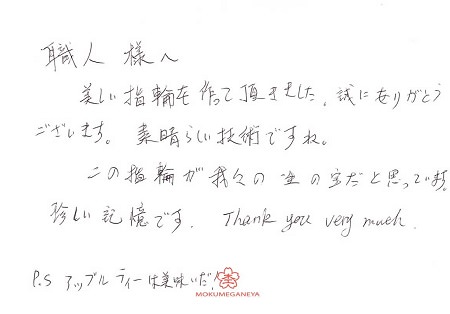 職人 様へ
美しい指輪を作って頂きました、誠にありがとう
ございます。素晴らしい技術ですね。
この指輪が我々の 宝だと思っています。
珍しい記憶です. Thank you very much.
P.S アップル ティーは美味いだ!
MOKUMEGANEYA